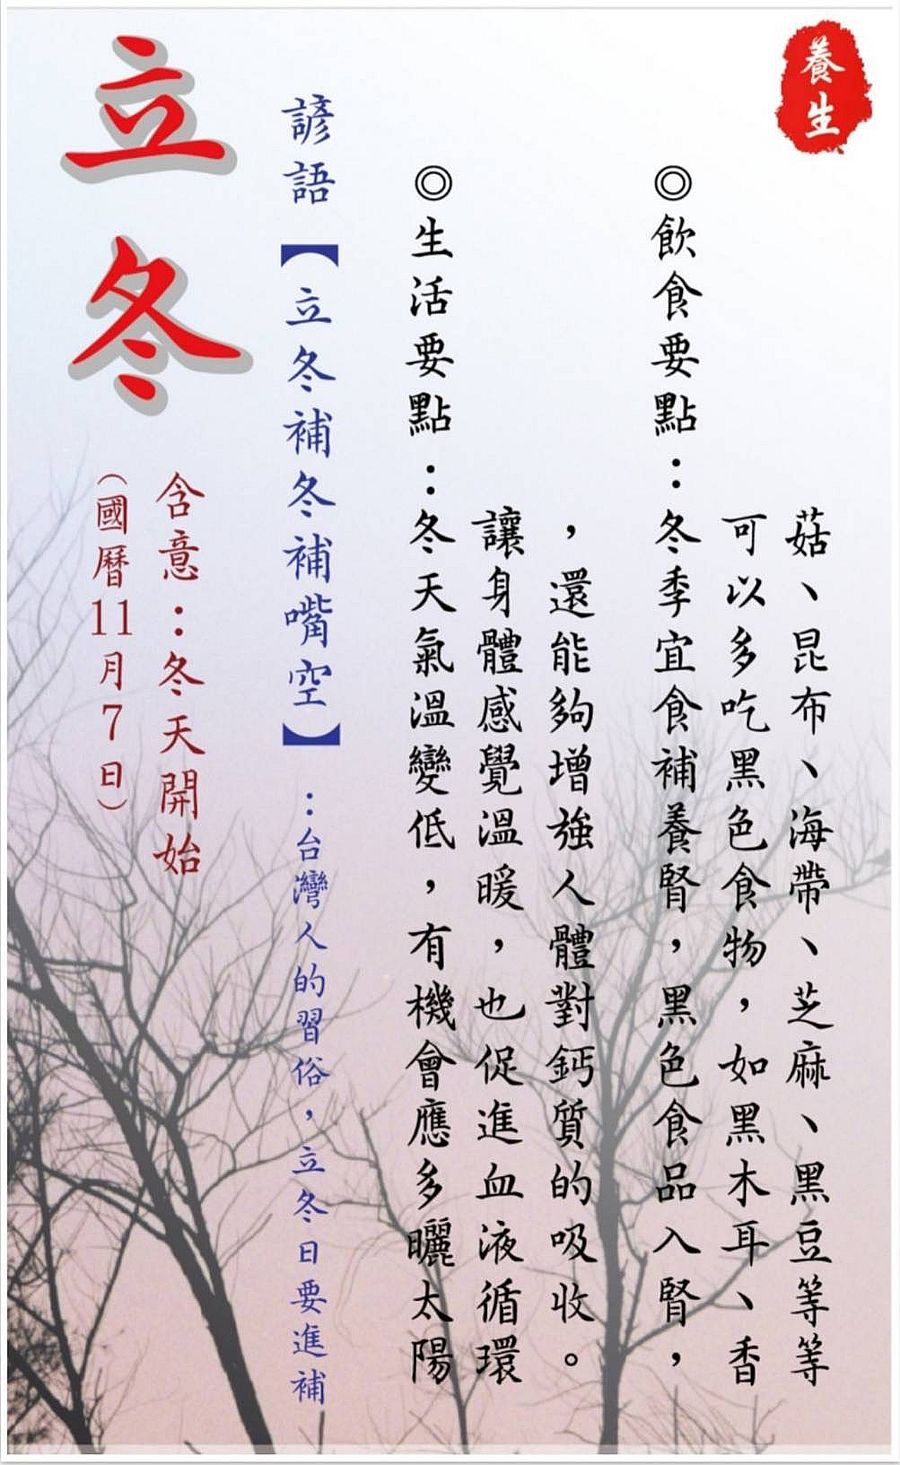 立冬
含意：冬天開始
（國曆11月7日）
諺語【立冬補冬補嘴空】：台灣人的習俗，立冬日要進補
◎生活要點：冬天氣溫變低，有機會應多曬太陽
讓身體感覺溫暖，也促進血液循環
，還能夠增強人體對鈣質的吸收。
◎飲食要點：冬季宜食補養腎，黑色食品入腎，
可以多吃黑色食物，如黑木耳、香
菇、昆布、海帶、芝麻、黑豆等等
養生